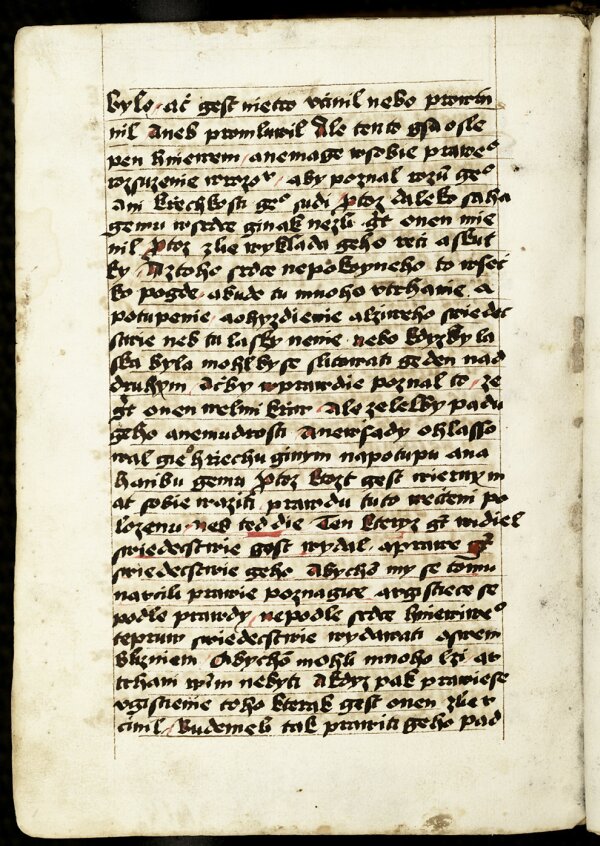 bylo. ač gest nietco vcinil nebo prowin
nil Aneb promluwil Ale tento gsa osle
pen hniewem. anemage wsobie praweo
rozsuzenie wrozor. aby poznal rozū geo
ani krzechkosti geo sudi ptoz daleko saha
gemu wsrdce ginak nezli gt onen mie
nil ptoz zlie wyklada geho reci askut
ky. Aztoho srdce nepokoyneho to wsec
ko pogde. abude tu mnoho vtrhanie. a
potupenie. aohyzdienie alziweho swiedec
stwie neb tu lasky nenie. nebo kdyzby la
ska byla mohlby se slitowati geden nad
druhym. Acby wprawdie poznal to. ze
gt onen welmi kriw. Ale zelelby padu
geho anemudrosti. Anewsady ohlasso
wal gieo hriechu ginym napotupu ana
hanbu gemu ptoz kozt gest wiernym
at sobie wraziti prawdu tuto wcteni po
lozenu. neb ted die. Ten kteryz gt widiel
swiedecstwie gest wydal. aprawe gt
swiedecstwie geho Abychō my se tomu
naucili prawie poznagice. argistiece se
podle prawdy. nepodle srdce hniewiweo
tepruw swiedecstwie wydawati oswem
blizniem. Abychō mohli mnoho lzi. aw
trhani winni nebyti Akdyz pak prawiese
vgistieme toho kterak gest onen zlie v
cinil. Budemeli tak prawiti geho pad